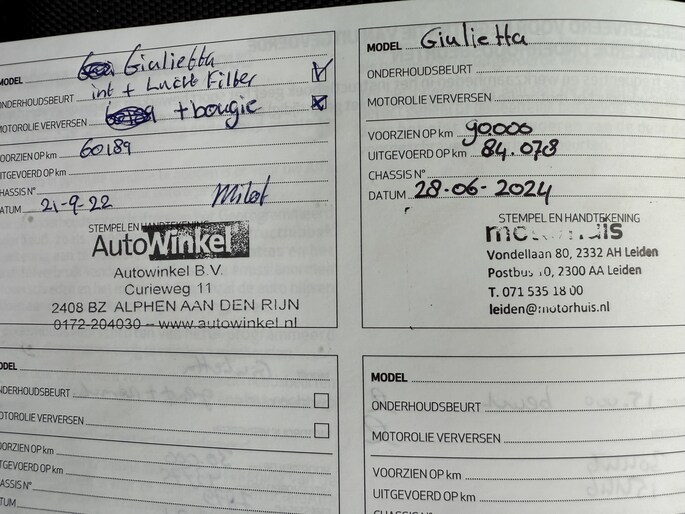 MODEL Giulietta
ONDERHOUDSBEURT int + Lucht Filter
MOTOROLIE VERVERSEN + bougie
VOORZIEN OP km 60189
UITGEVOERD OP km
CHASSIS N°
DATUM 21-9-22
STEMPEL EN HANDTEKENING
AutoWinkel
Autowinkel B.V.
Curieweg 11
2408 BZ ALPHEN AAN DEN RIJN
0172-204030 – www.autowinkel.nl
MODEL Giulietta
ONDERHOUDSBEURT
MOTOROLIE VERVERSEN
VOORZIEN OP km 90.000
UITGEVOERD OP km 84.078
CHASSIS N°
DATUM 28-06-2024
STEMPEL EN HANDTEKENING
Vondellaan 80, 2332 AH Leiden
2300 AA Leiden
T. 071 535 18 00
leiden@motorhuis.nl
ODEL
NDERHOUDSBEURT
OTOROLIE VERVERSEN
OORZIEN OP km
ITGEVOERD OP km
HASSIS N°
TUM
MODEL
ONDERHOUDSBEURT
MOTOROLIE VERVERSEN
VOORZIEN OP km
UITGEVOERD OP km